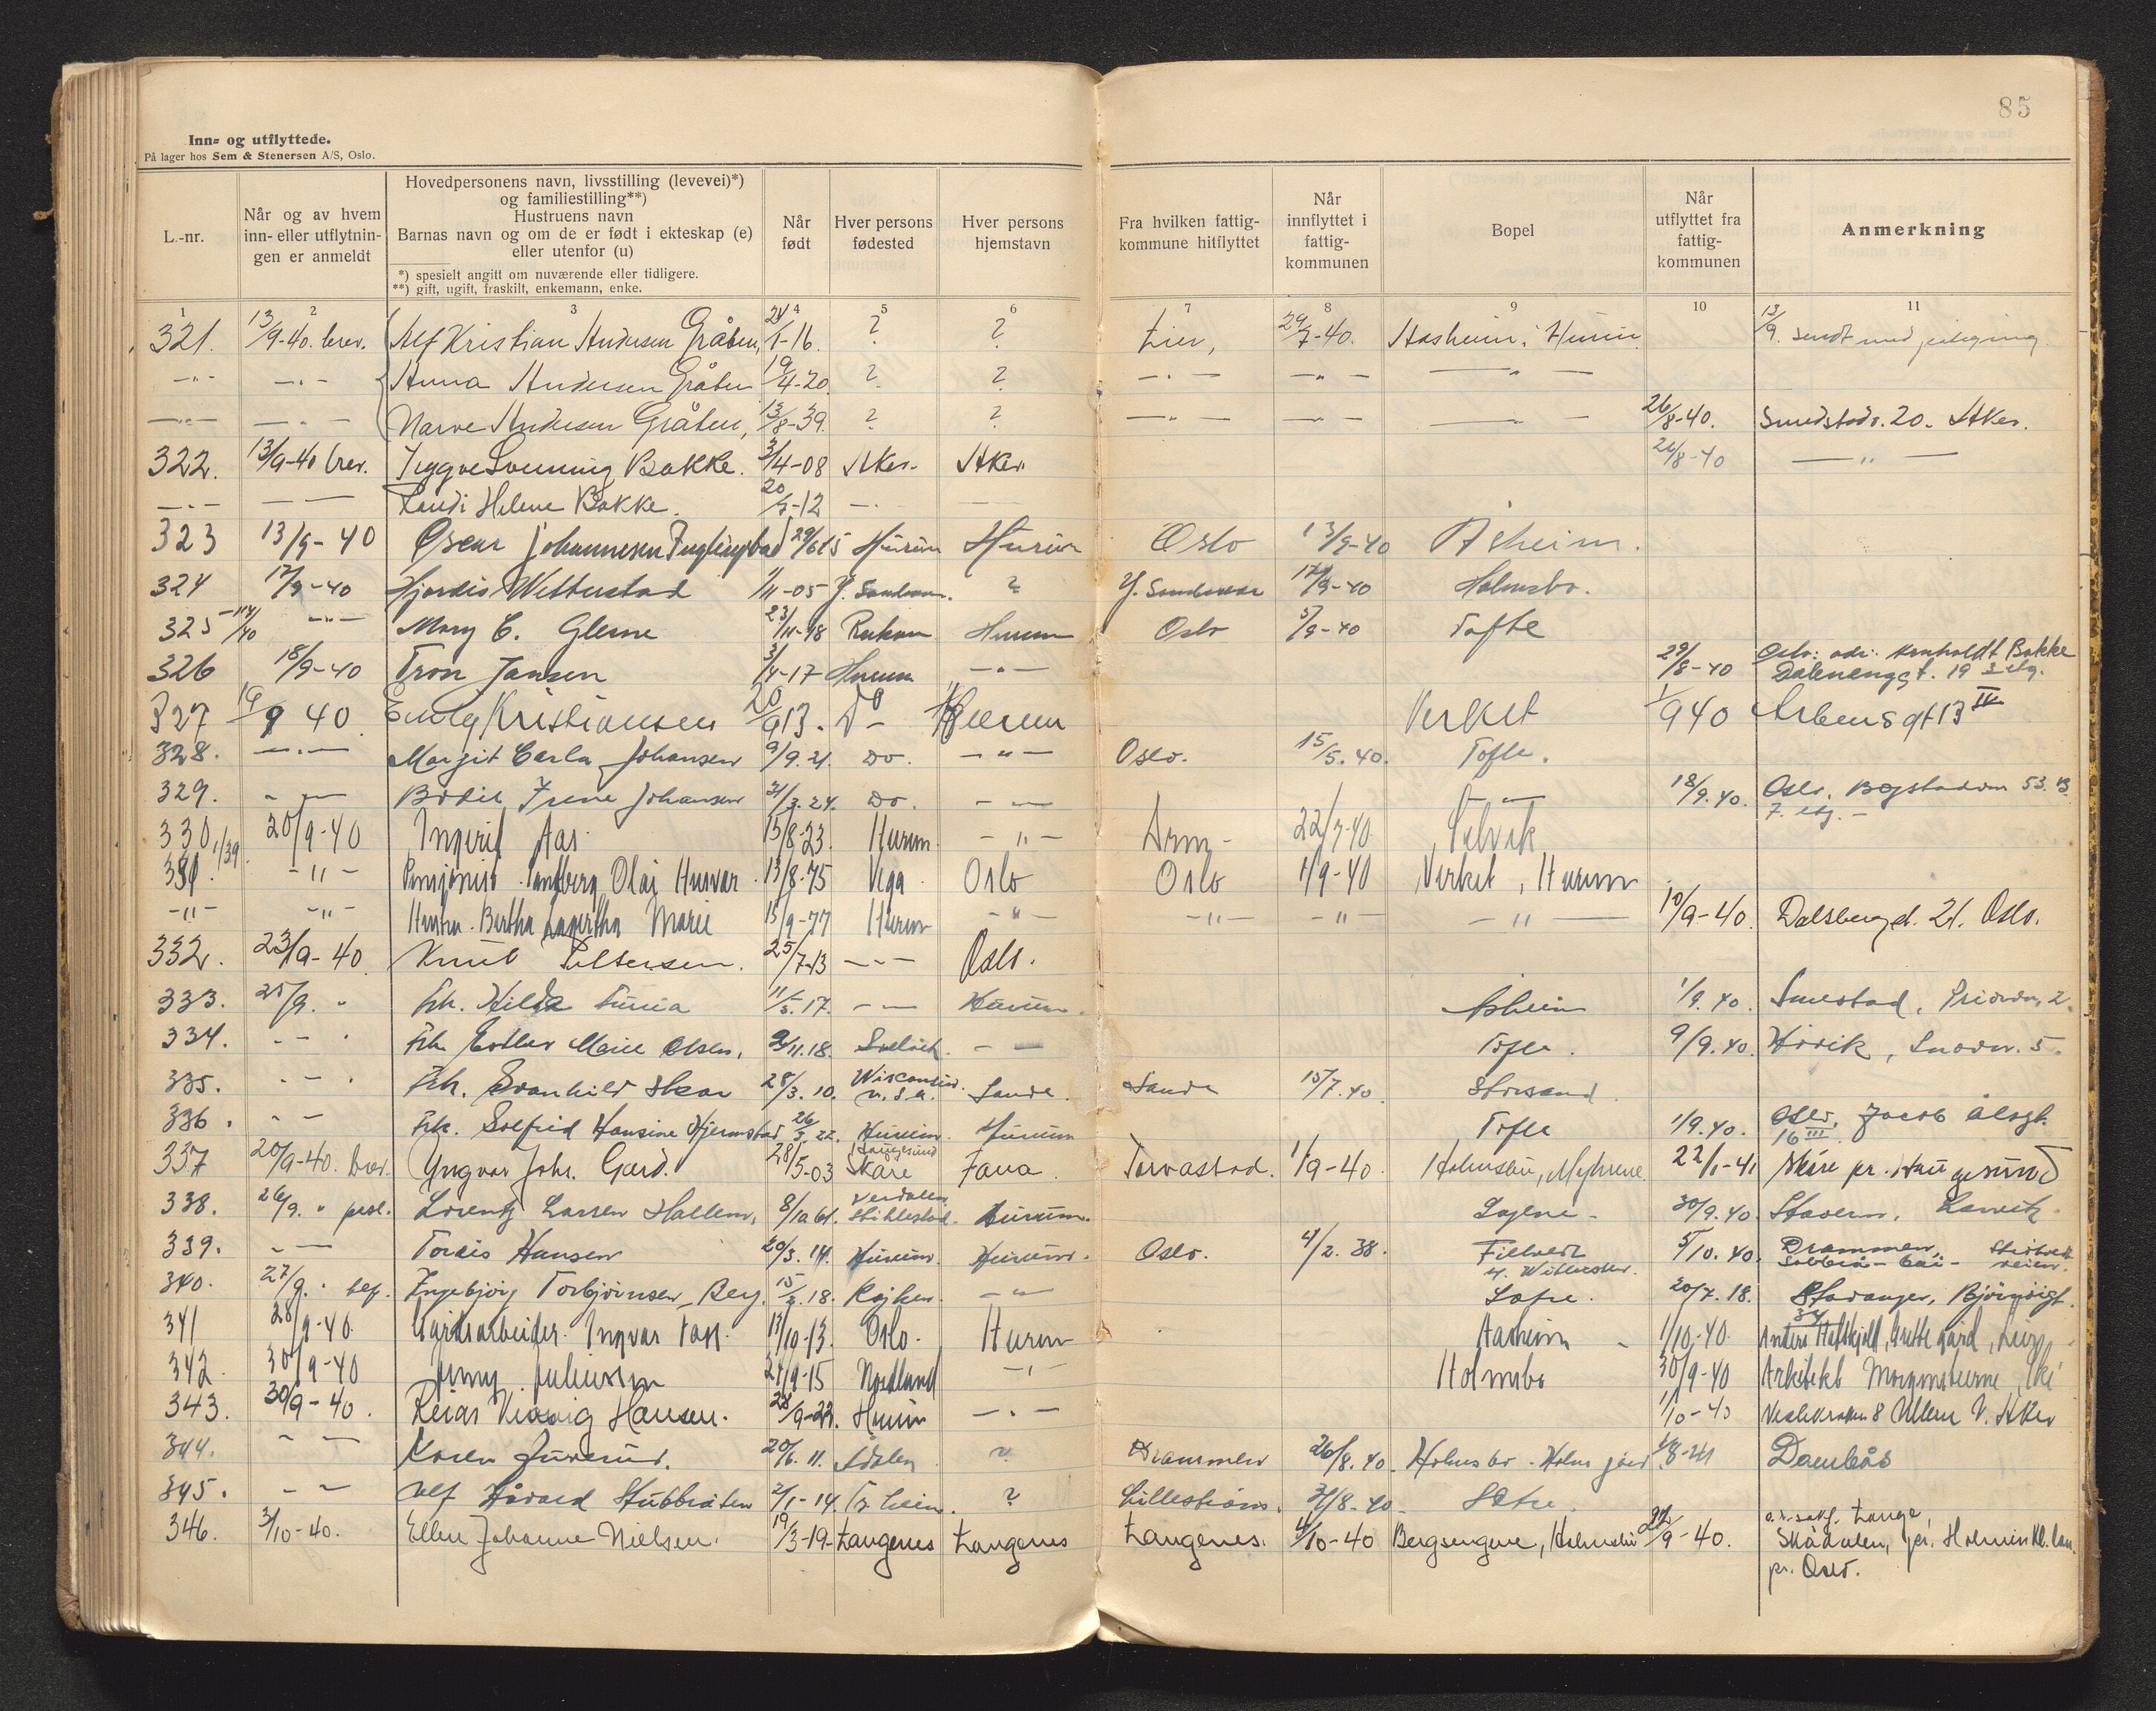 85
Inn- og utflyttede.
På lager hos Sem & Stenersen A/S, Oslo.
L.-nr.
Når og av hvem inn- eller utflytningen er anmeldt
Hovedpersonens navn, livsstilling (levevei)*) og familiestilling**)
Hustruens navn
Barnas navn og om de er født i ekteskap (e) eller utenfor (u)
*) spesielt angitt om nuværende eller tidligere.
**) gift, ugift, fraskilt, enkemann, enke.
Når født
Hver persons fødested
Hver persons hjemstavn
Fra hvilken fattigkommune hitflyttet
Når innflyttet i fattigkommunen
Bopel
Når utflyttet fra fattigkommunen
Anmerkning
1 2 3 4 5 6 7 8 9 10 11
321. 13/9-40. brev. Alf Kristian Andersen Gråten, 24/1-16. ? ? Lier, 29/7-40. Aasheim, Hurum 13/9. sendt med
-"- -"- Anna Andersen Gråten 19/4-20. ? ? -"- -"- -"-
-"- -"- Narve Andersen Gråten, 13/8-39. ? ? -"- -"- -"- 26/8-40. Smedstadv. 20. Aker.
322. 13/9-40 brev. Tryggve Bakke. 3/4-08 Aker. Aker 26/8-40 -"-
-"- Randi Helene Bakke. 20/7-12 -
323 13/9-40 Oscar Johannesen 29/6 15 Hurum Hurum Oslo 13/9-40 Åsheim.
324 17/9-40 Hjordis Wetterstad 1/11-05 ? 17/9-40 Holmsbo.
325 -"- Mary C. Glerne 23/11-18 Rukan Hurum Oslo 5/9-40 Tofte
326 18/9-40 Tron Jansen 3/4-17 Hurum -"- 29/8-40 Oslo: adr. Bakke
Dalenenggt. 19 3 etg.
327 19/9 40 Emly Kristiansen 20/9 13. Do - Hurum Verket 1/9 40 Arbensgt 13 IV
328. -"- Margit Carla Johansen 9/9. 21. Do. -"- Oslo. 15/5. 40. Tofte.
329. -"- Bodil Irene Johansen 21/3. 24. Do. -"- -"- 18/9. 40. Oslo, Bogstadvn 53. B
7. etg. -
330 20/9-40 Ingerid Aas. 15/8-23. Hurum -"- Drm- 22/7-40 Selvik
331. -"- Pensjonist Olaf Husvar 13/8-75 Vega Oslo Oslo 1/9-40 Verket, Hurum
-"- -"- Hustru. Bertha Marie 15/9-77 Hurum -"- -"- -"- -"- 10/9-40. Dalsbergst. 21. Oslo.
332. 23/9-40 Knut Pettersen. 25/7-13 -"- Oslo.
333. 25/9. " Frk. Hilda 11/5. 17. -"- Hurum. Åsheim 1/9. 40. Smestad, 2.
334. -"- Frk. Esther Marie Olsen, 23/11. 18. Selvik. -"- Tofte. 9/9. 40. Høvik, 5.
335. -"- Frk. Svanhild Skar 28/3. 10. Wisconsin.
U. S. A. Sande. Sande 15/7. 40 Storsand.
336. -"- Frk. Solfrid Hansine Hjermstad 26/5. 22. Hurum. Hurum Tofte 1/9. 40. Oslo, Jacob Alsgt.
16 III
337 20/9-40. brev. Yngvar Johs. Gard. 28/5-03 Haugesund
Skåre Fana Torvastad. 1/9-40. Holmsbu, Myhrene 22/1-41 Skåre pr. Haugesund
338. 26/9. " Lorentz Larsen Hallem, 8/10 61. Verdalen
Stiklestad. Hurum. 30/9. 40. Stavern, Larvik.
339. -"- Tordis Hansen 20/3. 14. Hurum. Hurum. Oslo. 4/2. 38. Filtvedt 5/10. 40. Drammen,
340. 27/9. " Ingebjørg Torbjørnsen Berg. 15/2. 18. Røyken -"- Sætre. 20/7. 18. Stavanger,
341 28/9-40. Gårdsarbeider. Ingvar 13/10-13. Oslo. Hurum Aasheim 1/10-40. Anders gård, Lier
342 30/9-40 Jenny Juliussen 24/9-15 Nordland -"- Holmsbo 30/9-40 Arkitekt Morgenstierne, Ski
343. 30/9-40. Reidar Hansen. 28/9-22. Hurum -"- 1/10-40 8 Ullern V. Aker
344. -"- Karen Jurerud. 20/6. 11. Ådalen ? Drammen 26/8. 40. Holmsbo - Holm gård 1/8-41 Dombås
345. -"- Alf Håvard Stubbråten 2/1-14. ? Lillestrøm. 31/8-40 Sætre.
346. 3/10-40. Ellen Johanne Nielsen. 19/3-19- Langenes Langenes Langenes. 4/10-40 Bergsengene, Holmsbu 22/9-40. o.r.sakf. Lange,
Skådalen, pr. Holmenkl.ban.
pr. Oslo.